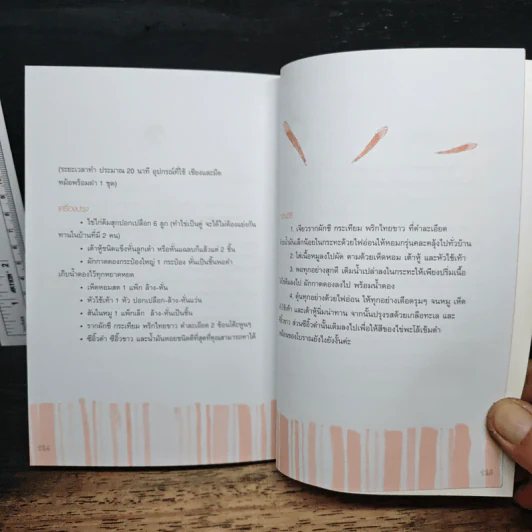 (ระยะเวลาทำ ประมาณ 20 นาที อุปกรณ์ที่ใช้ เขียงและมีด
หม้อพร้อมฝา 1 ชุด)
เตรียมปรุง
• ไข่ไก่ต้มสุกปอกเปลือก 6 ลูก (ทำไข่เป็นคู่ จะได้ไม่ต้องแย่งกัน
ทานในบ้านที่มี 2 คน)
• เต้าหู้ชนิดแข็งหั่นลูกเต๋า หรือหั่นแฉลบก็แล้วแต่ 2 ชิ้น
• ผักกาดดองกระป๋องใหญ่ 1 กระป๋อง หั่นเป็นชิ้นพอคำ
เก็บน้ำดองไว้ทุกหยาดหยด
• เห็ดหอมสด 1 แพ็ก ล้าง-หั่น
• หัวไช้เท้า 1 หัว ปอกเปลือก-ล้าง-หั่นแว่น
• สันในหมู 1 แพ็กเล็ก ล้าง-หั่นเป็นชิ้น
• รากผักชี กระเทียม พริกไทยขาว ตำละเอียด 2 ช้อนโต๊ะพูนๆ
• ซีอิ๊วดำ ซีอิ๊วขาว และน้ำมันหอยชนิดดีที่สุดที่คุณสามารถหาได้
1. เจียวรากผักชี กระเทียม พริกไทยขาว ที่ตำละเอียด
น้ำมันเล็กน้อยในกระทะด้วยไฟอ่อนให้หอมกรุ่นคละคลุ้งไปทั่วบ้าน
2. ใส่เนื้อหมูลงไปผัด ตามด้วยเห็ดหอม เต้าหู้ และหัวไช้เท้า
3. พอทุกอย่างสุกดี เติมน้ำเปล่าลงในกระทะให้เพียงปริ่มเนื้อ
ต้มลงไป ผักกาดดองลงไป พร้อมน้ำดอง
4. ตุ๋นทุกอย่างด้วยไฟอ่อน ให้ทุกอย่างเดือดรุมๆ จนหมู เห็ด
ไช้เท้า และเต้าหู้นิ่มน่าทาน จากนั้นปรุงรสด้วยเกลือทะเล และ
ซีอิ๊วขาว ส่วนซีอิ๊วดำนั้นเติมลงไปเพื่อให้สีของไข่พะโล้เข้มดำ
เหมือนของโบราณยังไงยังงั้นค่ะ